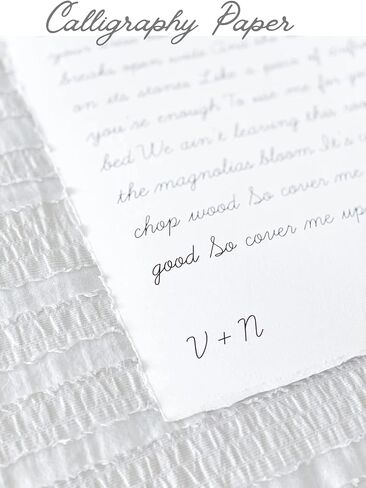 Calligraphy Paper
breaks upon
on its stones Like a piece of
you're enough To use me for
bed We ain't leaving this
the magnolias bloom It's
chop wood So cover me
good So cover me up
V + N